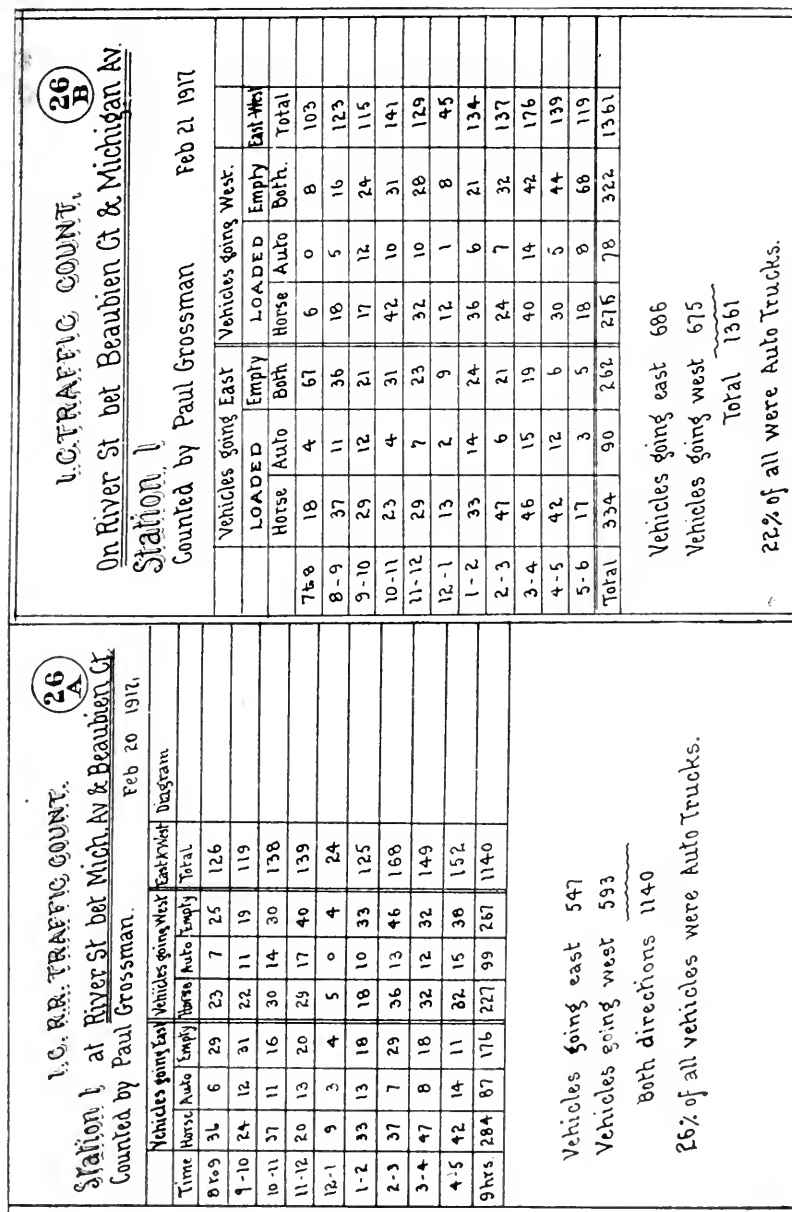 I.C. R.R. TRAFFIC COUNT. 26 A
Station 1, at River St bet Mich. Av & Beaubien Ct.
Counted by Paul Grossman. Feb 20 1912.
Vehicles going East Vehicles going West East & West Diagram
Time Horse Auto Empty Horse Auto Empty Total
8 to 9 36 6 29 23 7 25 126
9-10 24 12 31 22 11 19 119
10-11 37 11 16 30 14 30 138
11-12 20 13 20 29 17 40 139
12-1 9 3 4 5 0 4 24
1-2 33 13 18 18 10 33 125
2-3 37 7 29 36 13 46 168
3-4 47 8 18 32 12 32 149
4-5 42 14 11 32 15 38 152
9 hrs. 284 87 176 227 99 267 1140
Vehicles going east 547
Vehicles going west 593
Both directions 1140
26% of all vehicles were Auto Trucks.
I.C. TRAFFIC COUNT. 26 B
On River St bet Beaubien Ct & Michigan Av.
Station 1
Counted by Paul Grossman Feb 21 1917
Vehicles going East Vehicles going West.
LOADED Empty LOADED Empty East-West
Horse Auto Both Horse Auto Both. Total
7 to 8 18 4 67 6 0 8 103
8-9 37 11 36 18 5 16 123
9-10 29 12 21 17 12 24 115
10-11 23 4 31 42 10 31 141
11-12 29 7 23 32 10 28 129
12-1 13 2 9 12 1 8 45
1-2 33 14 24 36 6 21 134
2-3 47 6 21 24 7 32 137
3-4 46 15 19 40 14 42 176
4-5 42 12 6 30 5 44 139
5-6 17 3 5 18 8 68 119
Total 334 90 262 275 78 322 1361
Vehicles going east 686
Vehicles going west 675
Total 1361
22% of all were Auto Trucks.